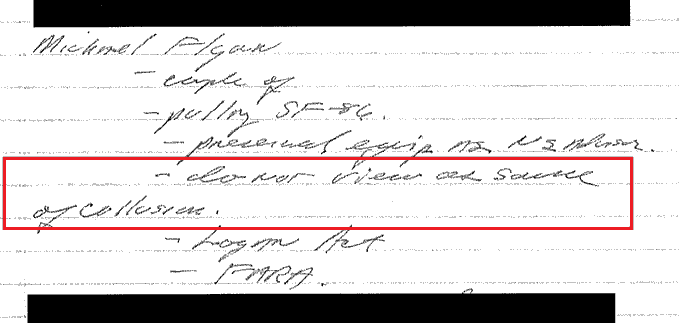 Michael Flynn
- couple of
- pulling SF-86.
- preserved equip
- do not view as source
of collusion.
- Logan Act
- FARA.